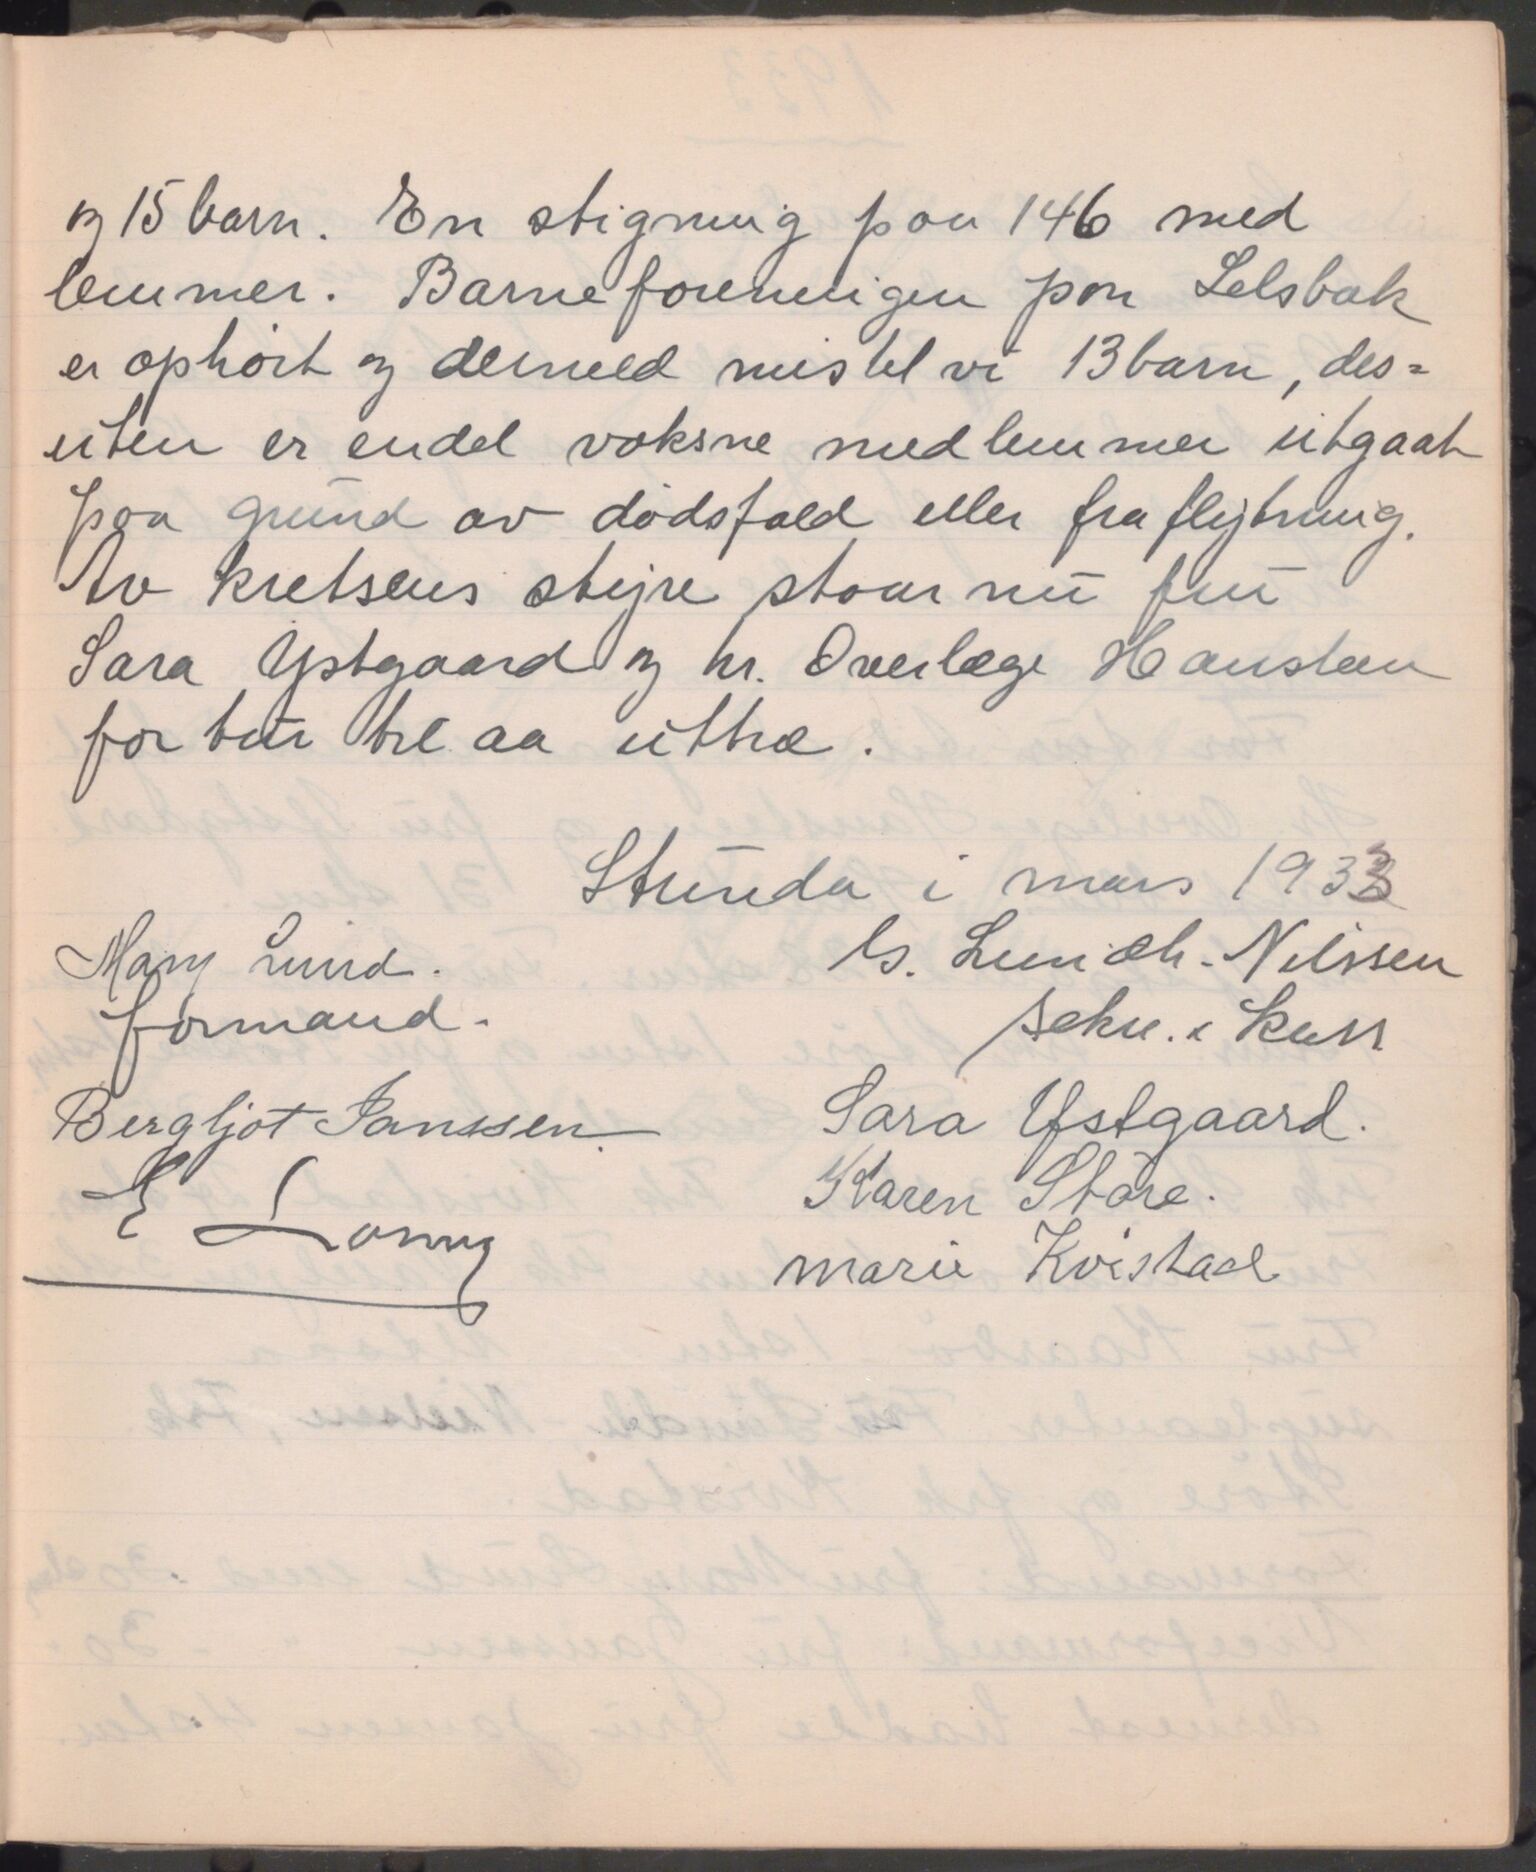 og 15 barn. En stigning paa 146 med
lemmer. Barneforeningen paa Selsbak
er ophørt og dermed mistet vi 13 barn, des=
uten er endel voksne medlemmer utgaat
paa grund av dødsfald eller fraflytning.
Av kretsens styre staar nu fru
Sara Ystgaard og hr. Overlæge Hansteen
for tur til aa uttræ.
Strinda i mars 1933
Mary Lund.
formand.
G. Lundh-Nilssen
sekr. & kass
Bergljot Janssen
Sara Ystgaard.
Karen Støre.
Marie Kvistad